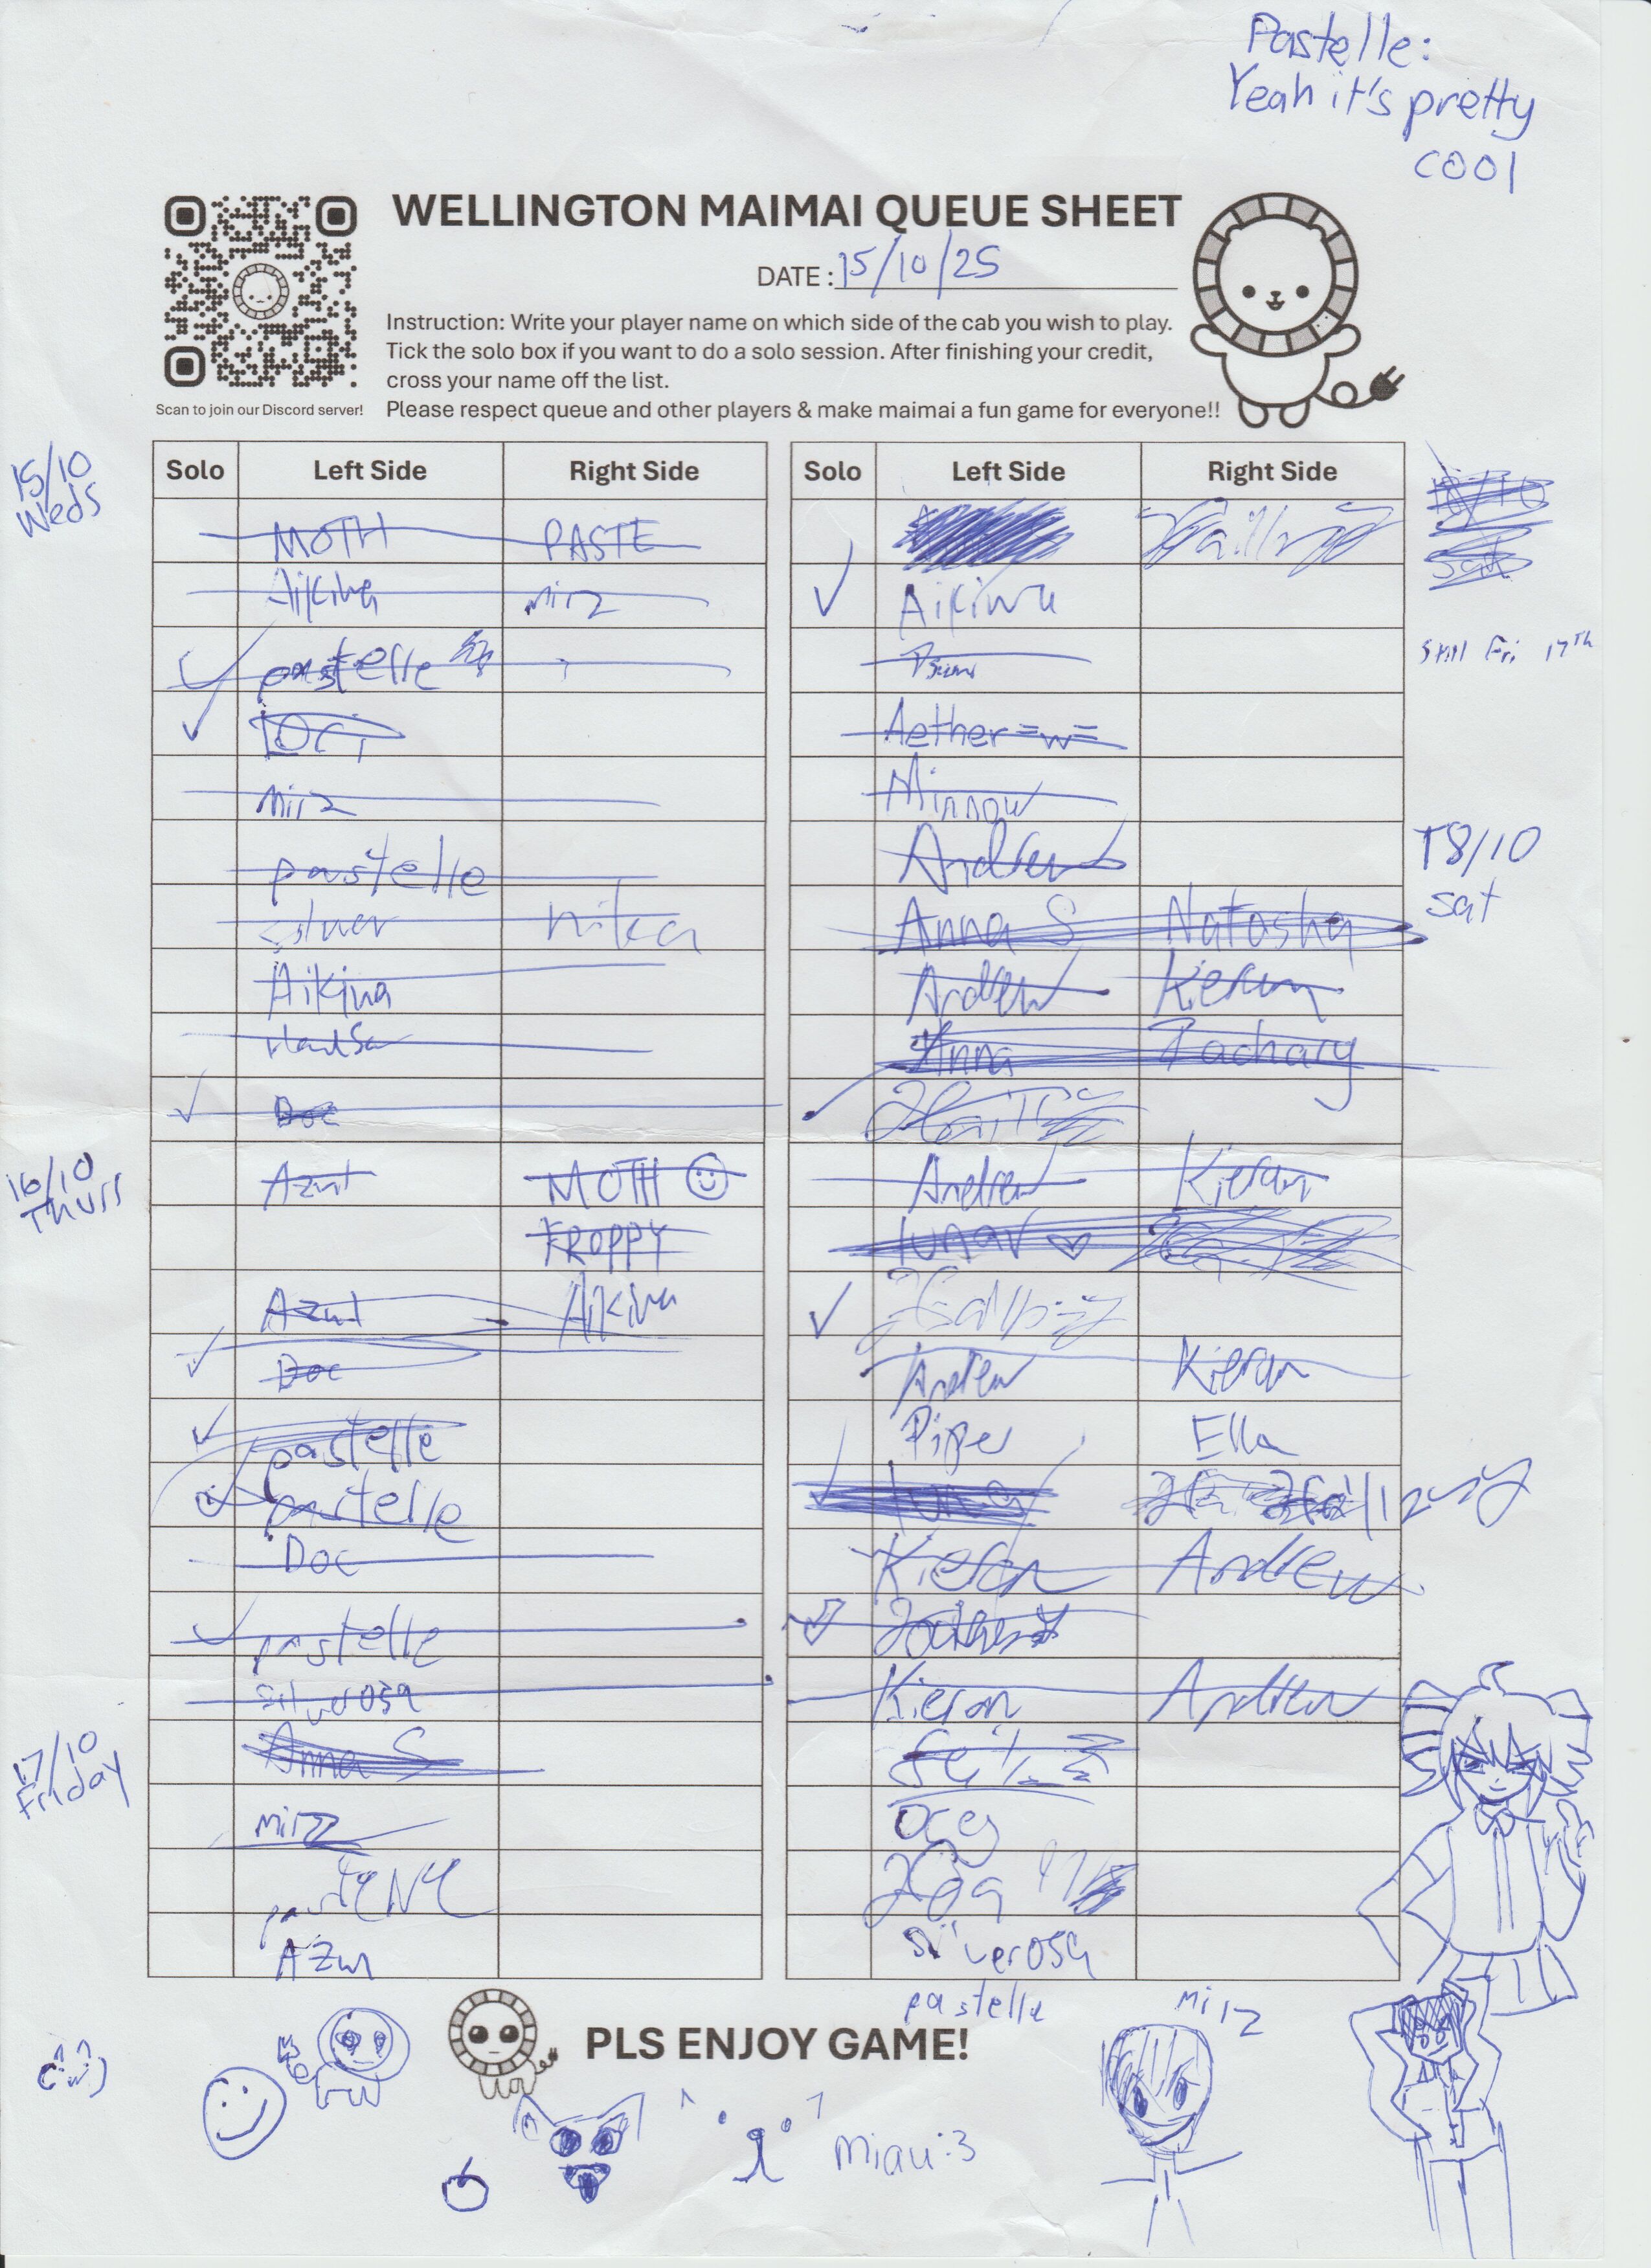 Pastelle:
Yeah it's pretty
cool
WELLINGTON MAIMAI QUEUE SHEET
DATE : 15/10/25
Instruction: Write your player name on which side of the cab you wish to play.
Tick the solo box if you want to do a solo session. After finishing your credit,
cross your name off the list.
Please respect queue and other players & make maimai a fun game for everyone!!
Scan to join our Discord server!
Solo Left Side Right Side
15/10
Weds
MOTH PASTE
Aikiwa mirz
pastelle
mirz
pastelle
silver nika
Aikiwa
Doc
16/10
Thurs
Azul MOTH ☺
FROPPY
Azul Aikiwa
Doc
pastelle
pastelle
Doc
pastelle
silverosa
17/10
Friday
Anna S
mirz
pastelle
Azul
Solo Left Side Right Side
18/10
Sat
Aikiwa
Still Fri 17th
Aether =w=
Minnow
Andrew
18/10
Sat
Anna S Natasha
Andrew Kieran
Anna Zachary
Andrew Kieran
lunar ♡
Andrew Kieran
Piper Ella
lunar
Kieran Andrew
Kieran Andrew
silverosa
pastelle
mirz
PLS ENJOY GAME!
miau:3